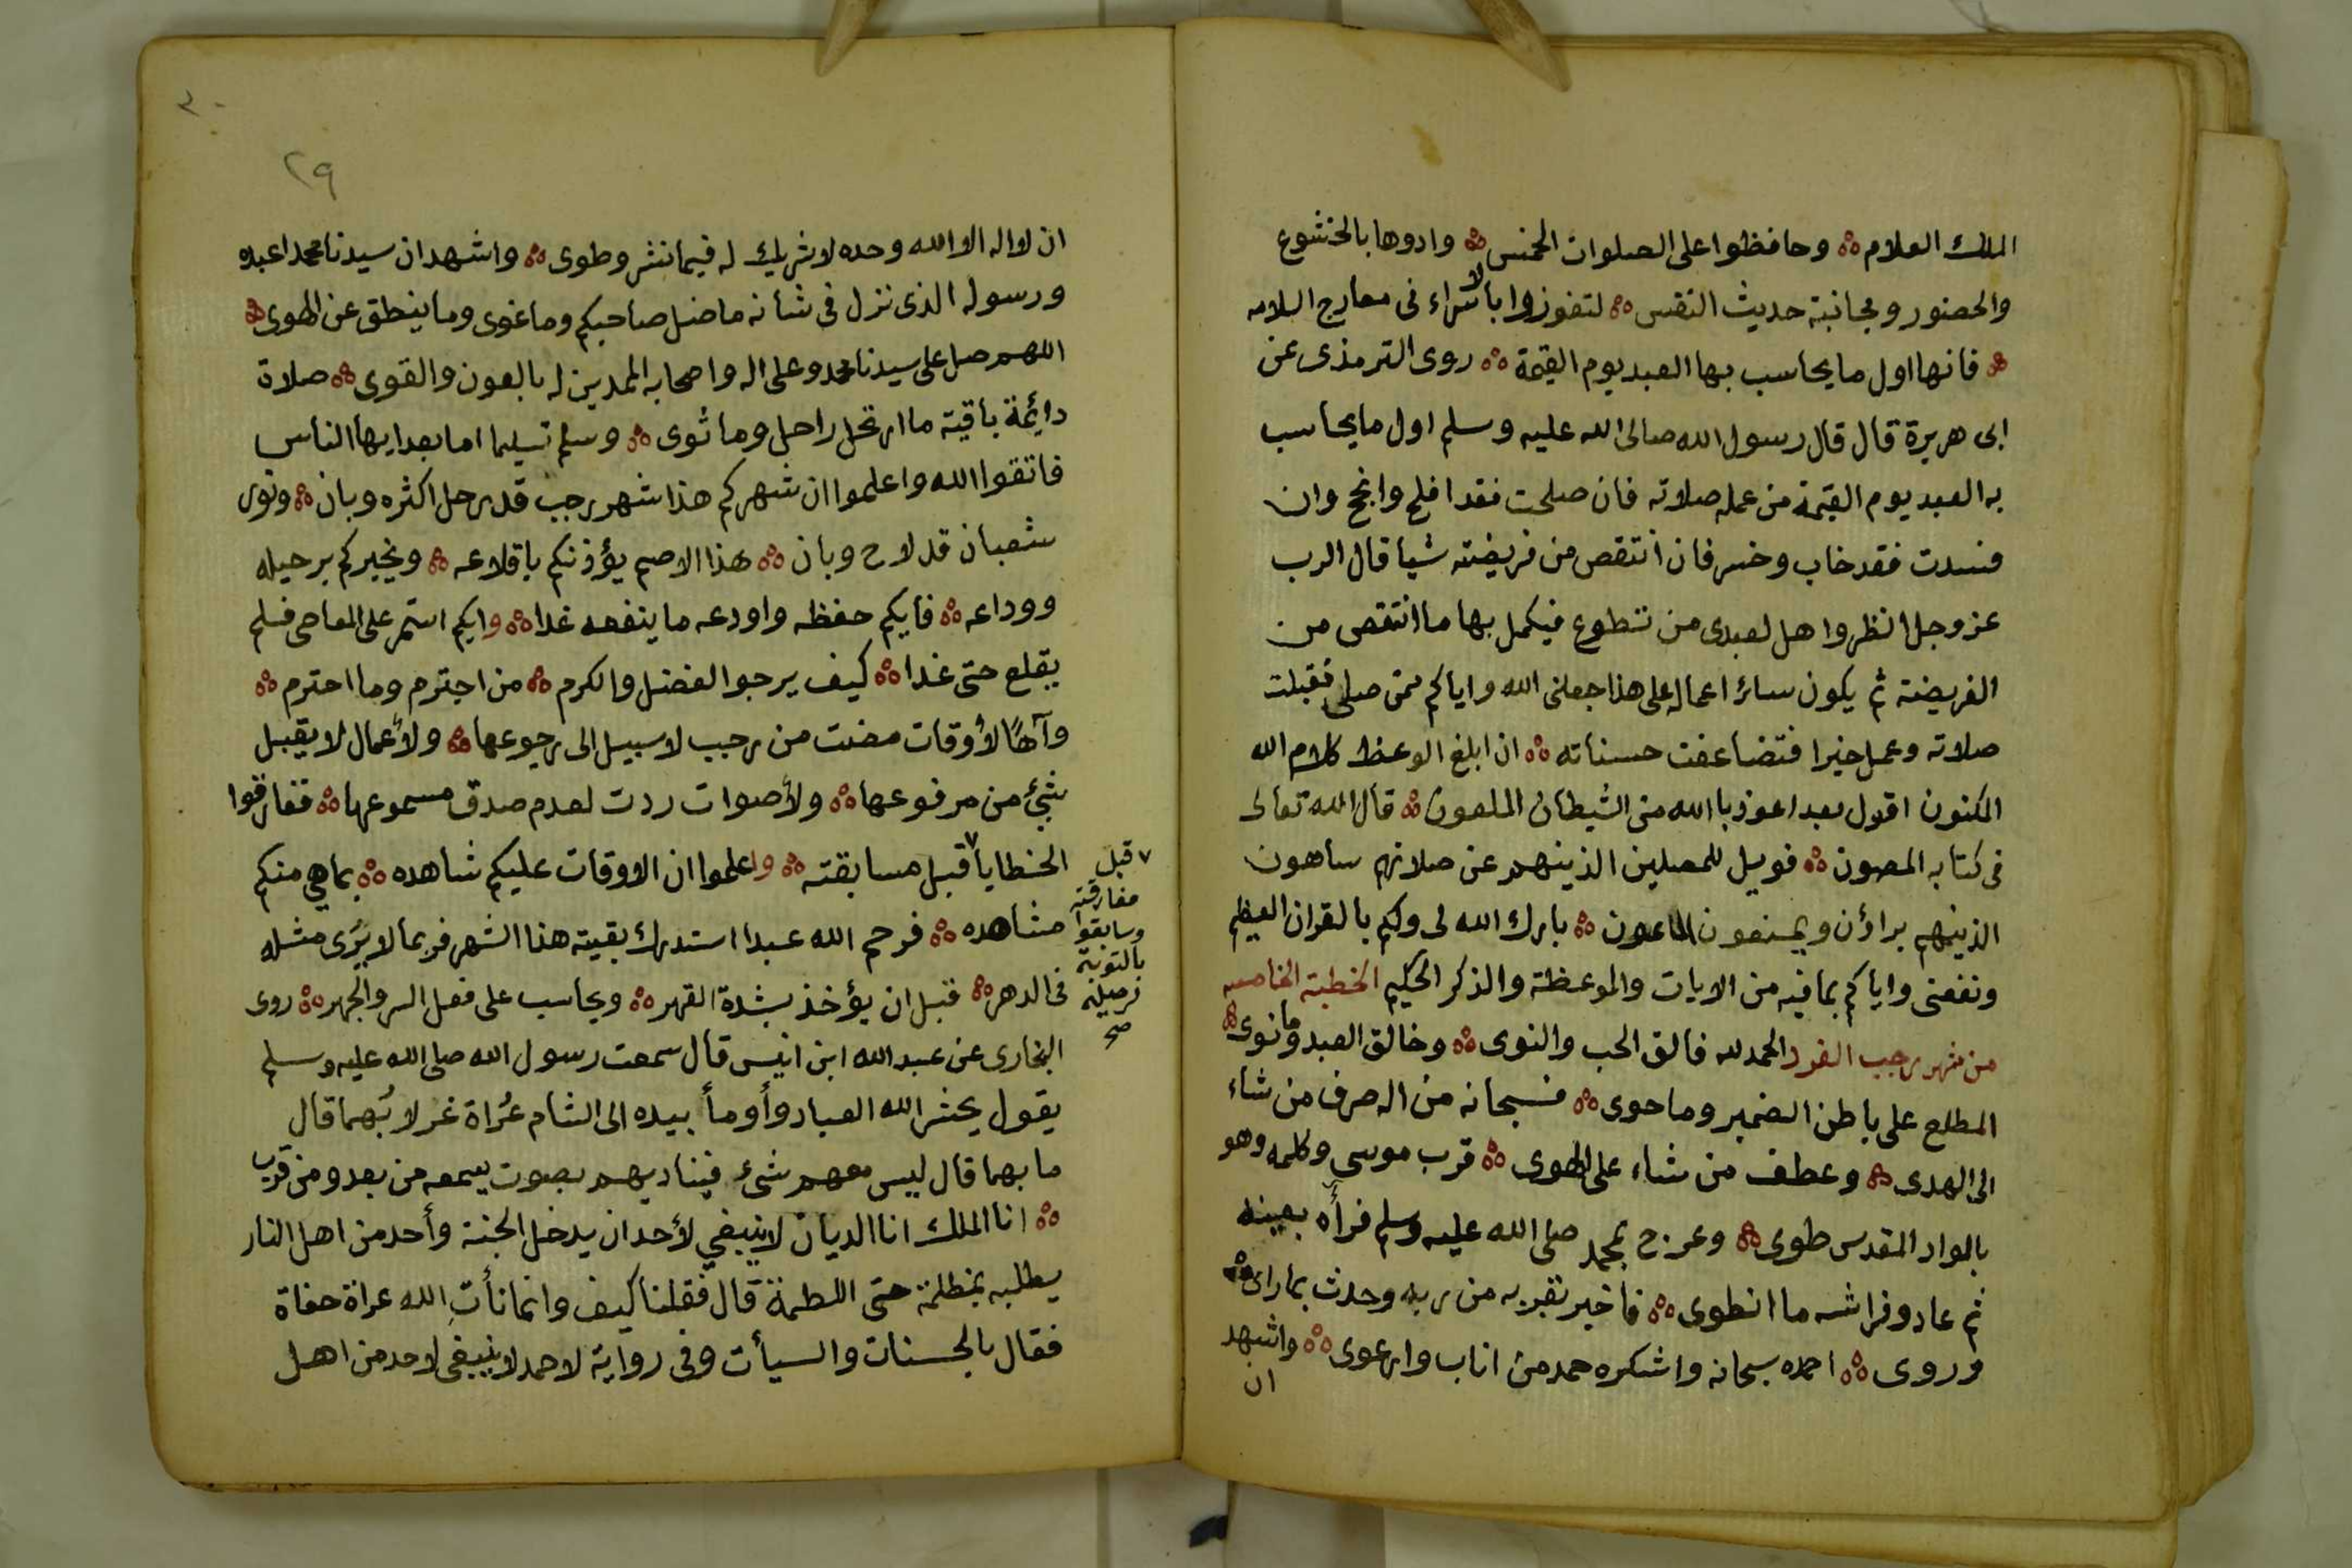 الملك العلام ۞ وحافظوا على الصلوات الخمس ۞ وادوها بالخشوع
والحضور ومجانبة حديث النفس ۞ لتفوزوا بالاسراء فى معارج السلامه
۞ فانها اول ما يحاسب بها العبد يوم القيمة ۞ روى الترمذى عن
ابى هريرة قال قال رسول الله صلى الله عليه وسلم اول ما يحاسب
به العبد يوم القيمة من عمله صلاته فان صلحت فقد افلح وانجح وان
فسدت فقد خاب وخسر فان انتقص من فريضته شيا قال الرب
عز وجل انظروا هل لعبدى من تطوع فيكمل بها ما انتقص من
الفريضة ثم يكون سائر اعماله على هذا جعلنى الله واياكم ممن صلى فقبلت
صلاته وعمل خيرا فتضاعفت حسناته ۞ ان ابلغ الوعظ كلام الله
المكنون اقول بعد اعوذ با الله من الشيطان الملعون ۞ قال الله تعالى
فى كتابه المصون ۞ فويل للمصلين الذينهم عن صلاتهم ساهون
الذينهم يراؤن ويمنعون الماعون ۞ بارك الله لى ولكم بالقران العظيم
ونفعنى واياكم بما فيه من الايات والموعظة والذكر الحكيم الخطبة الخامسه
من شهر رجب الفرد الحمد لله فالق الحب والنوى ۞ وخالق العبد وما نوى ۞
المطلع على باطن الضمير وما حوى ۞ فسبحانه من اله صرف من شاء
الى الهدى ۞ وعطف من شاء على الهوى ۞ قرب موسى وكلمه وهو
بالواد المقدس طوى ۞ وعرج بمحمد صلى الله عليه وسلم فرأه بعينه
ثم عاد وفراشه ما انطوى ۞ فاخبر بقربه من ربه وحدث بما راى ۞
وروى ۞ احمده سبحانه واشكره حمد من اناب وارعوى ۞ واشهد
ان
٣٠
٢٩
ان لا اله الا الله وحده لا شريك له فيما نشر وطوى ۞ واشهد ان سيدنا محمدا عبده
ورسوله الذى نزل فى شانه ما ضل صاحبكم وما غوى وما ينطق عن الهوى ۞
اللهم صل على سيدنا محمد وعلى اله واصحابه الممدين له بالعون والقوى ۞ صلاة
دايمة باقية ما ارتحل راحل وما ثوى ۞ وسلم تسليما اما بعد ايها الناس
فاتقوا الله واعلموا ان شهركم هذا شهر رجب قد رحل اكثره وبان ۞ ونور
شعبان قد لاح وبان ۞ هذا الاصم يؤذنكم باقلاعه ۞ ويخبركم برحيله
ووداعه ۞ فايكم حفظه واودعه ما ينفعه غدا ۞ وايكم استمر على المعاصى فلم
يقلع حتى غدا ۞ كيف يرجوا الفضل والكرم ۞ من اجترم وما احترم ۞
وآهًا لأوقات مضت من رجب لا سبيل الى رجوعها ۞ ولأعمال لا يقبل
شئ من مرفوعها ۞ ولأصوات ردت لعدم صدق مسموعها ۞ ففارقوا
الخطايا٧ قبل مسابقته ۞ واعلموا ان الاوقات عليكم شاهده ۞ بما هي منكم
مشاهده ۞ فرحم الله عبدا استدرك بقية هذا الشهر فربما لا يُرَى مثله
فى الدهر ۞ قبل ان يؤخذ بشدة القهر ۞ ويحاسب على فعل السر والجهر ۞ روى
البخارى عن عبد الله ابن انيس قال سمعت رسول الله صلى الله عليه وسلم
يقول يحشر الله العباد وأومأ بيده الى الشام عُراة غرلا بُهما قال
ما بهما قال ليس معهم شئ فيناديهم بصوت يسمعه من بعد ومن قرب
۞ انا الملك انا الديان لا ينبغي لأحد ان يدخل الجنة وأحد من اهل النار
يطلبه بمظلمة حتى اللطمة قال فقلنا كيف وانما نأت الله عراة حفاة
فقال بالحسنات والسيأت وفى رواية لاحمد لا ينبغى لاحد من اهل
٧ قبل
مفارقته
وسابقوا
بالتوبة
صح